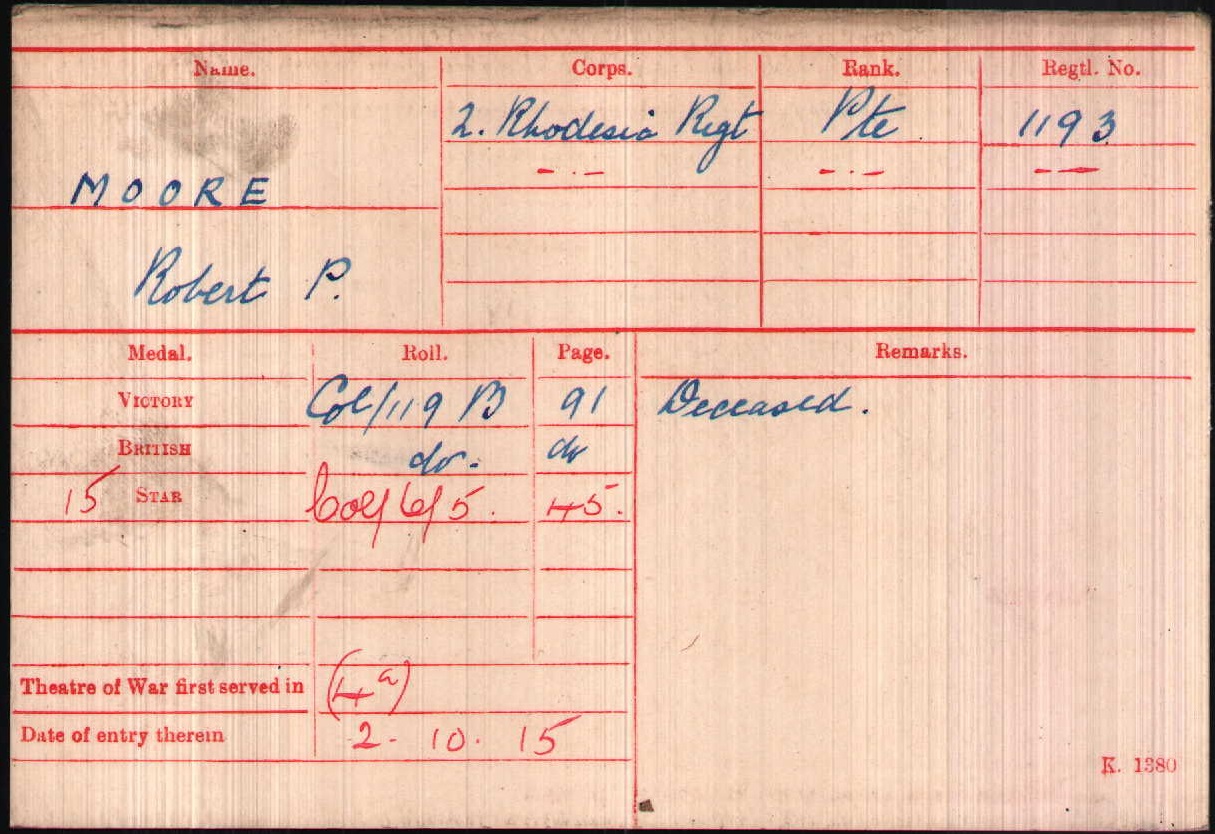 Name. Corps. Rank. Regtl. No.
2. Rhodesia Regt Pte 1193
— · — — · — — —
MOORE
Robert P.
Medal. Roll. Page. Remarks.
VICTORY Col/119 B 91 Deceased.
BRITISH do. do
15 STAR Col/6/5. 45.
Theatre of War first served in (4a)
Date of entry therein 2. 10. 15
K. 1380